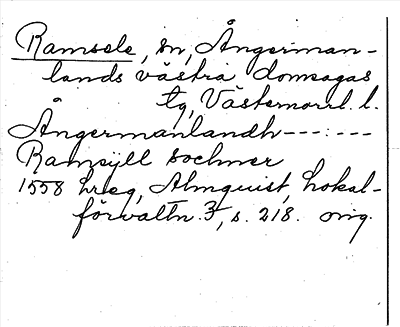 Ramsele, sn, Ångerman-
lands västra domsagas
tg, Västernorrl. l.
Ångermanlandh---:---
Ramsyll sochner
1558 hreg, Almquist, Lokal-
förvaltn. 3, s. 218. orig.